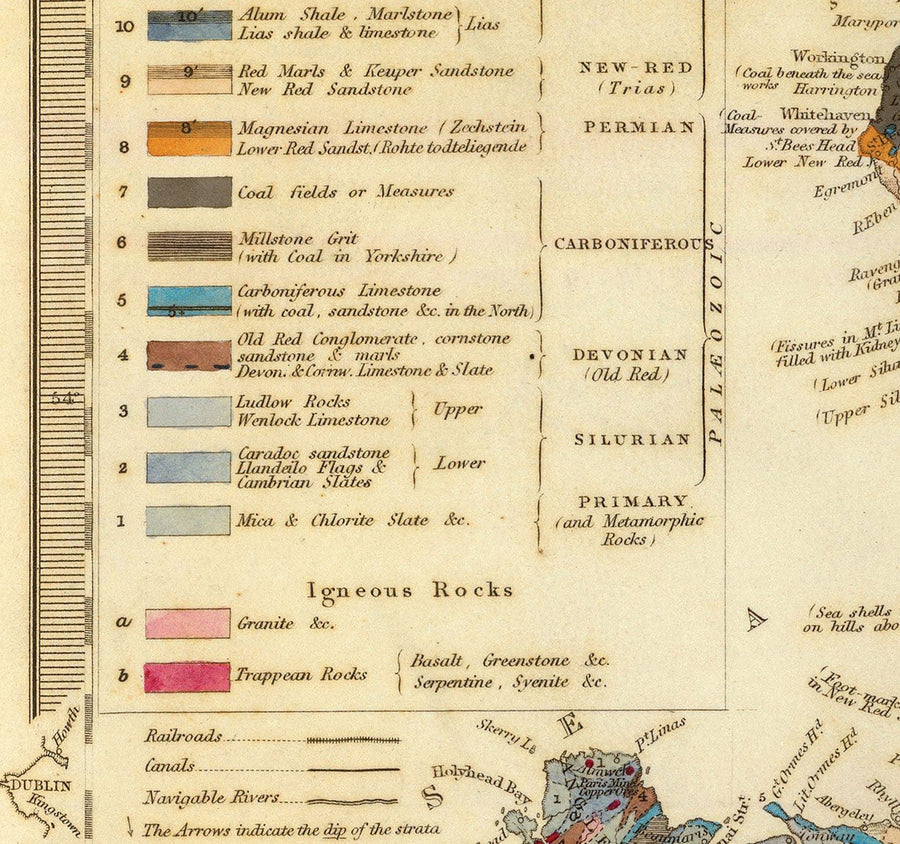 10 10' Alum Shale, Marlstone
Lias shale & limestone
Lias
9 9' Red Marls & Keuper Sandstone
New Red Sandstone
NEW-RED
(Trias)
8 8' Magnesian Limestone (Zechstein
Lower Red Sandst. (Rohte todteliegende
PERMIAN
7 Coal fields or Measures
6 Millstone Grit
(with Coal in Yorkshire)
CARBONIFEROUS
5 Carboniferous Limestone
(with coal, sandstone &c. in the North)
4 Old Red Conglomerate, cornstone
sandstone & marls
Devon. & Cornw. Limestone & Slate
DEVONIAN
(Old Red)
3 Ludlow Rocks
Wenlock Limestone
Upper
SILURIAN
2 Caradoc sandstone
Llandeilo Flags &
Cambrian Slates
Lower
PALÆOZOIC
1 Mica & Chlorite Slate &c.
PRIMARY
(and Metamorphic
Rocks)
Igneous Rocks
a Granite &c.
b Trappean Rocks
Basalt, Greenstone &c.
Serpentine, Syenite &c.
Railroads
Canals
Navigable Rivers
The Arrows indicate the dip of the strata
54°
Howth
DUBLIN
Kingstown
Marypor
Workington
(Coal beneath the sea
works Harrington
Coal- Whitehaven
Measures covered by
St Bees Head
Lower New Red
Egremont
R.Eben
Raveng
(Gra
(Fissures in Mt Li
filled with Kidney
(Lower Silu
(Upper Sil
A
(Sea shells
on hills abo
(Foot-mark
in New Red
E
S
Skerry Ld
Pt Linas
Holyhead Bay
Almwch
Paris Mine
Copper Ores
1
4
Beaumaris
5
Gt Ormes Hd
Lit. Ormes Hd
Abergeley
Rhyl
Conway